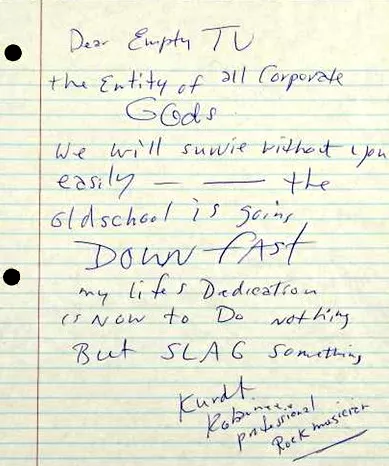 Dear Empty TV
the Entity of all Corporate
Gods
We will suvive without you
easily — — the
oldschool is going
DOWN fAST
my life's Dedication
is Now to Do nothing
But SLAG something
Kurdt
professional
Rock musician